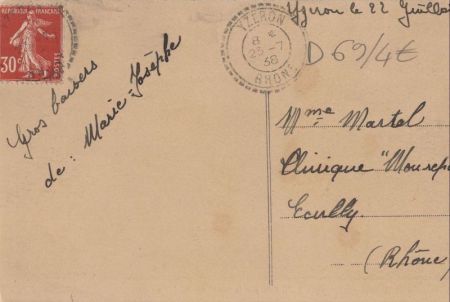 Yzeron le 22 Juillet
REPUBLIQUE FRANÇAISE
30c
POSTES
YZERON
8 *
25-7
38
RHONE
D 69/4€
Gros baisers
de : Marie-Josèphe
Mme Martel
Clinique "Mourepo
Ecully
(Rhône)